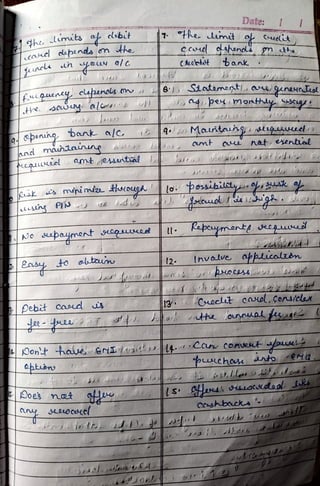 Date: / /
7. The limits of debit
card depends on the
funds in your a/c
7. The limit of credit
card depends on the
credit bank.
frequency depends on
the saving a/c
8. Statement are generated
as per monthly usage.
9. Opening bank a/c
and maintaining
required amt essential
9. Maintaing required
amt are not esential
Risk is minimize through
using PIN
10. possibility of risk of
fraud is high.
11. No repayment required
11. Repayments required
Easy to obtain
12. Involve application
process
Debit card is
fee-free
13. Credit card, Consider
the annual fee
Don't have EMI
option
14. Can convert your
purchase into EMI
Does not offer
any reward
15. offers rewarded like
cashbacks.